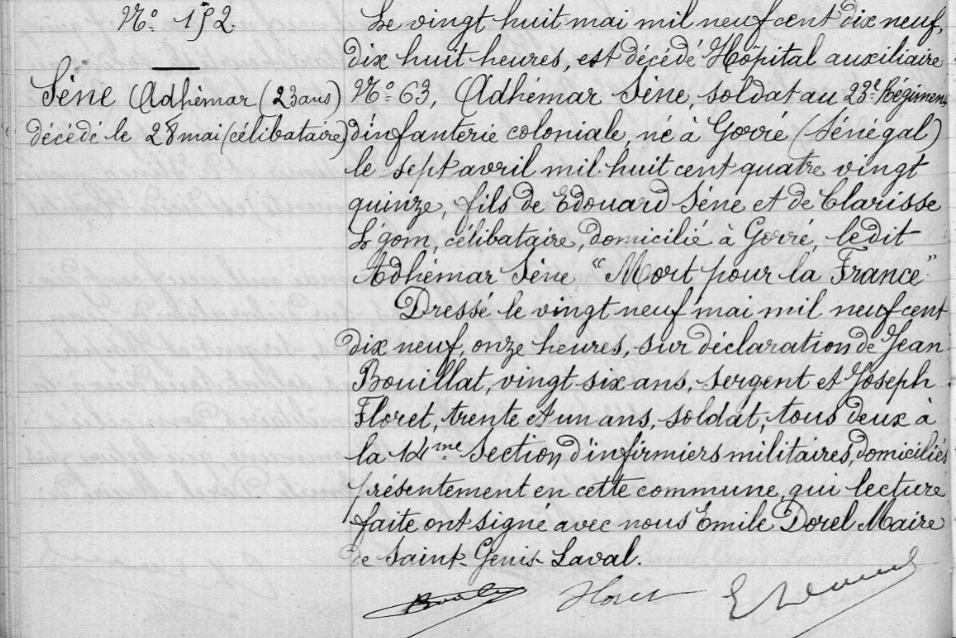 N° 152.
Sène Adhémar (23 ans)
décédé le 28 mai (célibataire)
Le vingt huit mai mil neuf cent dix neuf,
dix huit heures, est décédé Hôpital auxiliaire
N° 63, Adhémar Sène, soldat au 23e Régimen
d'infanterie coloniale, né à Gorré (Sénégal)
le sept avril mil huit cent quatre vingt
quinze, fils de Edouard Sène et de Clarisse
Légom, célibataire, domicilié à Gorré, ledit
Adhémar Sène "Mort pour la France"
Dressé le vingt neuf mai mil neuf cent
dix neuf, onze heures, sur déclaration de Jean
Bouillat, vingt six ans, sergent et Joseph
Floret, trente et un ans, soldat, tous deux à
la 14me Section d'infirmiers militaires, domiciliés
présentement en cette commune, qui lecture
faite ont signé avec nous Emile Dorel Maire
de Saint-Genis-Laval.
Floret